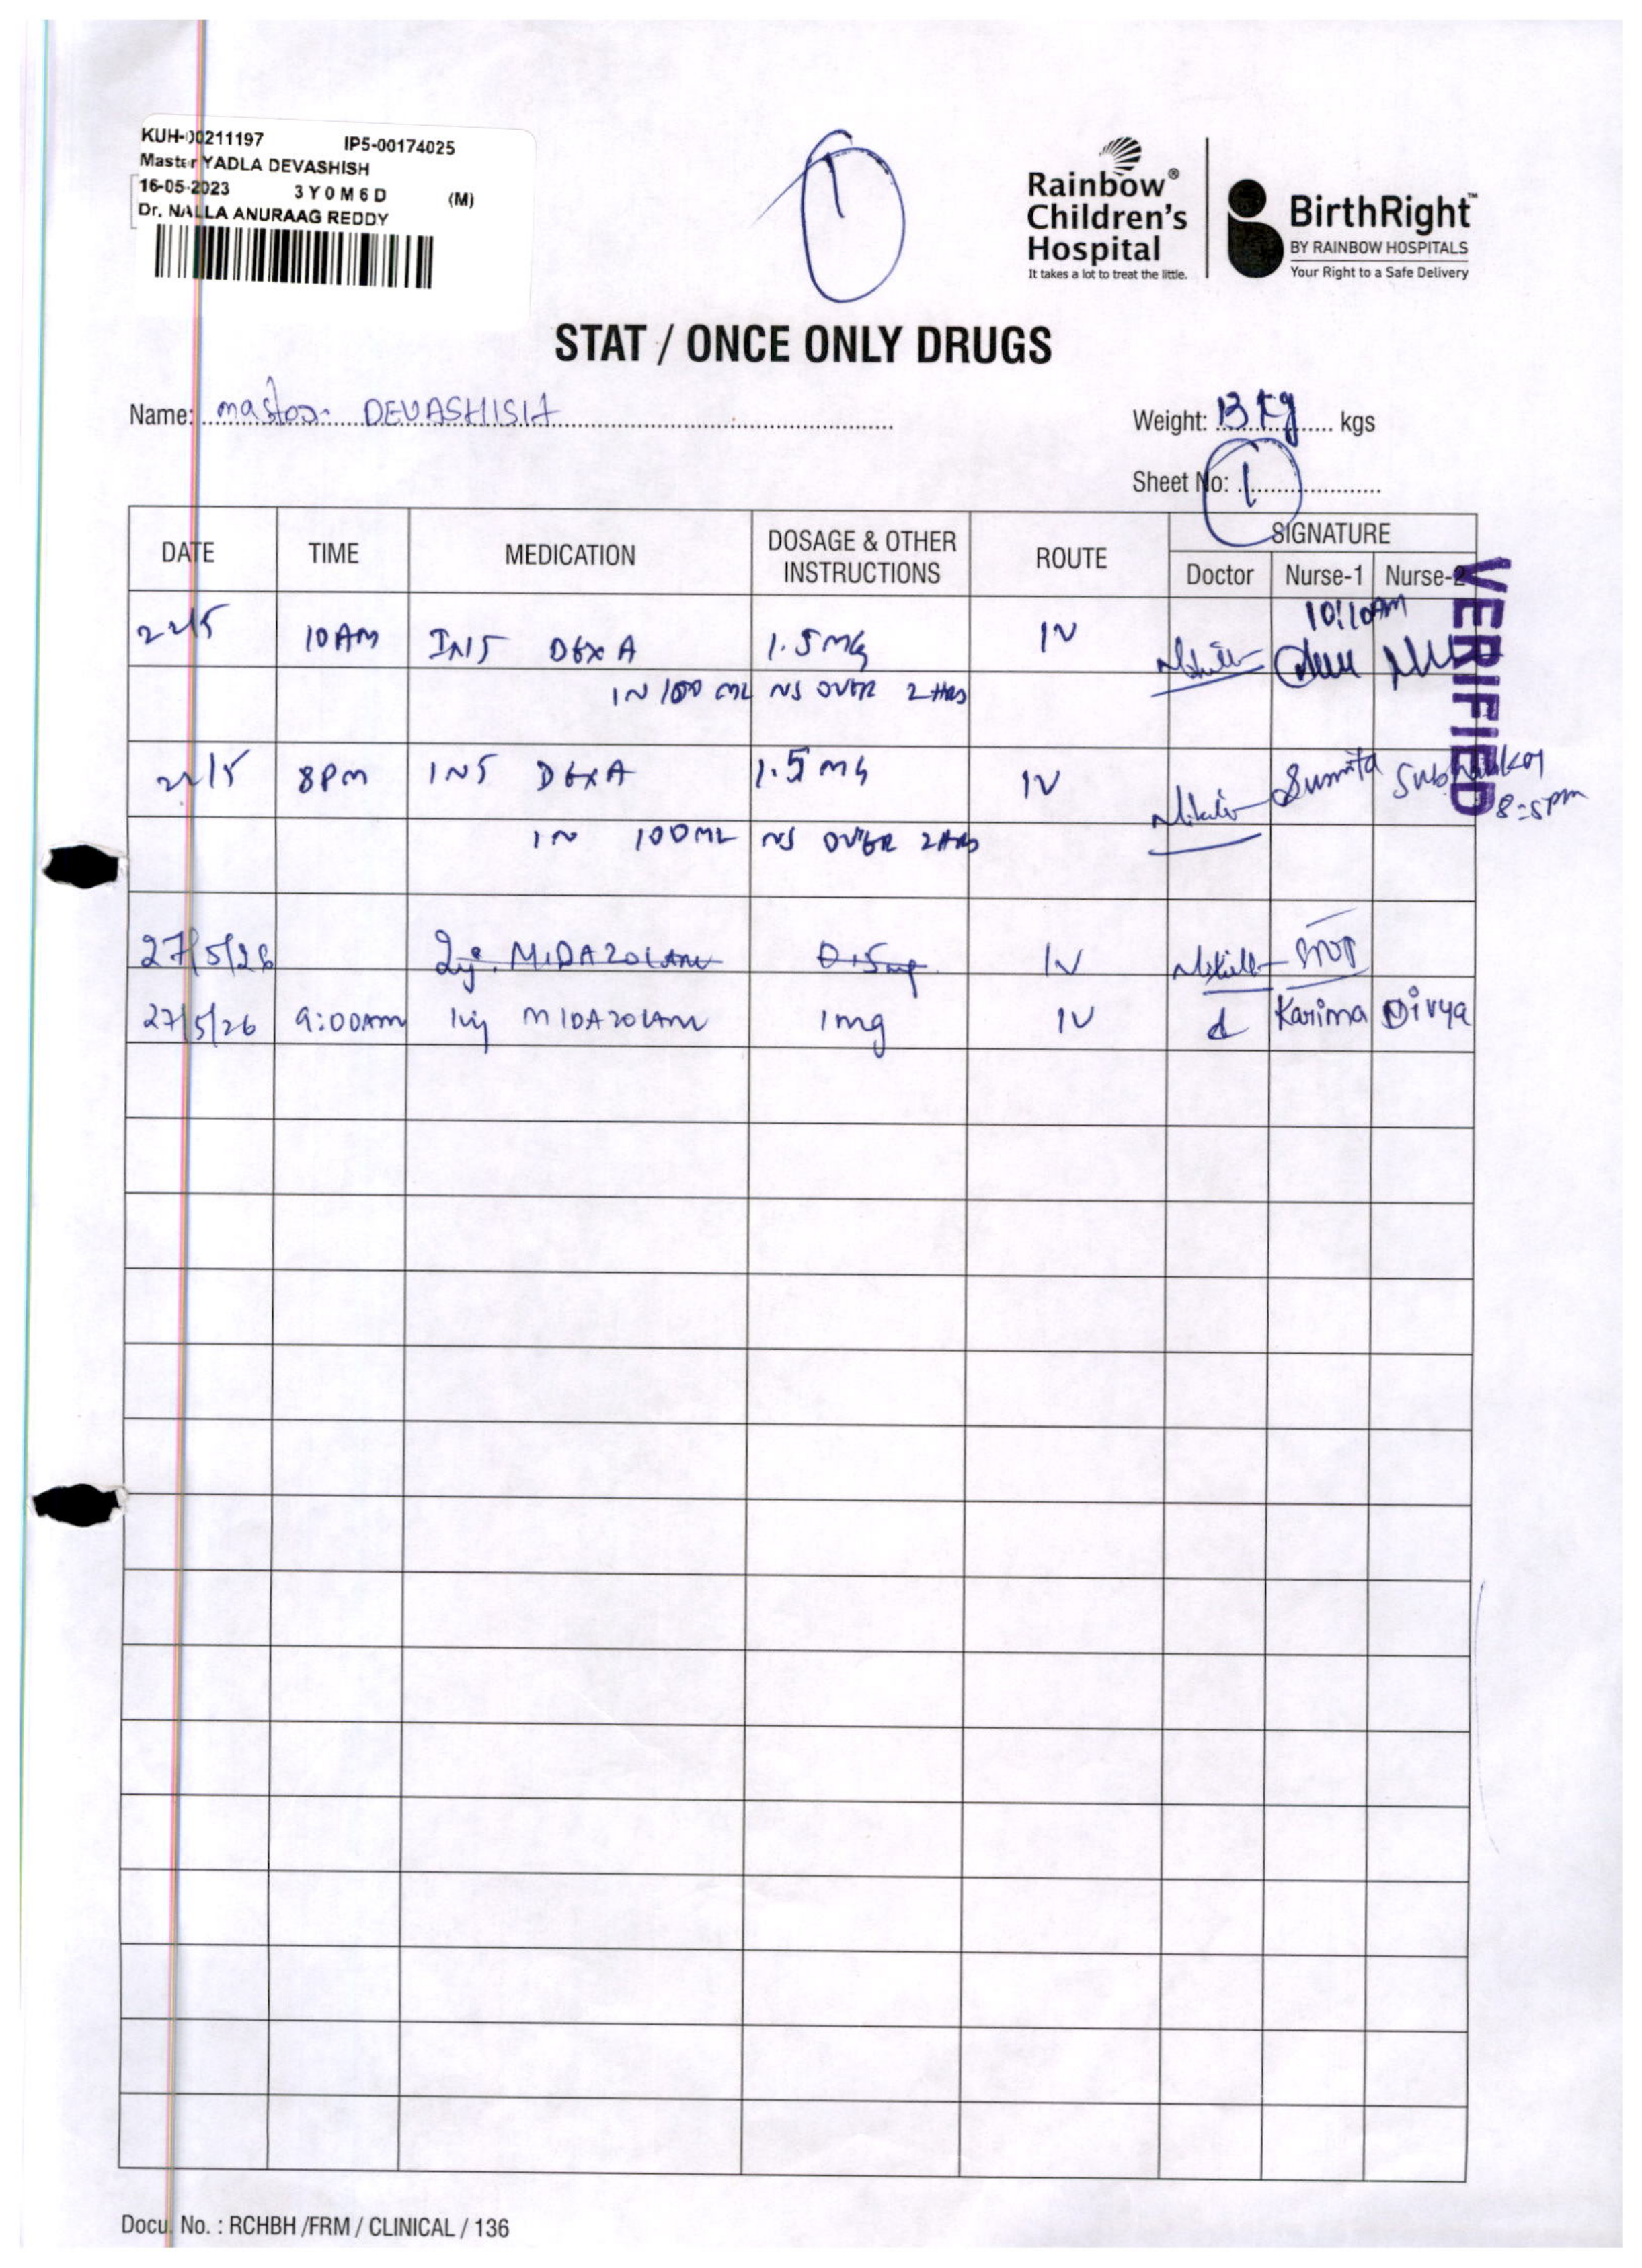 KUH-00211197 IP5-00174025
Master YADLA DEVASHISH
16-05-2023 3Y0M6D (M)
Dr. NALLA ANURAAG REDDY
1
Rainbow®
Children's
Hospital
It takes a lot to treat the little.
BirthRight™
BY RAINBOW HOSPITALS
Your Right to a Safe Delivery
STAT / ONCE ONLY DRUGS
Name: Master. DEVASHISH
Weight: 13 kg kgs
Sheet No: 1
DATE TIME MEDICATION DOSAGE & OTHER INSTRUCTIONS ROUTE SIGNATURE
Doctor Nurse-1 Nurse-2
VERIFIED
10:10AM
22/5 10AM INJ DEXA 1.5MG IV
IN 100 ML NS OVER 2 HRS
22/5 8PM INJ DEXA 1.5 MG IV Sumita
8:5pm
IN 100ML NS OVER 2 HRS
27/5/26 Inj. MIDAZOLAM 0.5mg IV
27/5/26 9:00AM Inj MIDAZOLAM 1mg IV Karima Divya
Docu. No. : RCHBH /FRM / CLINICAL / 136